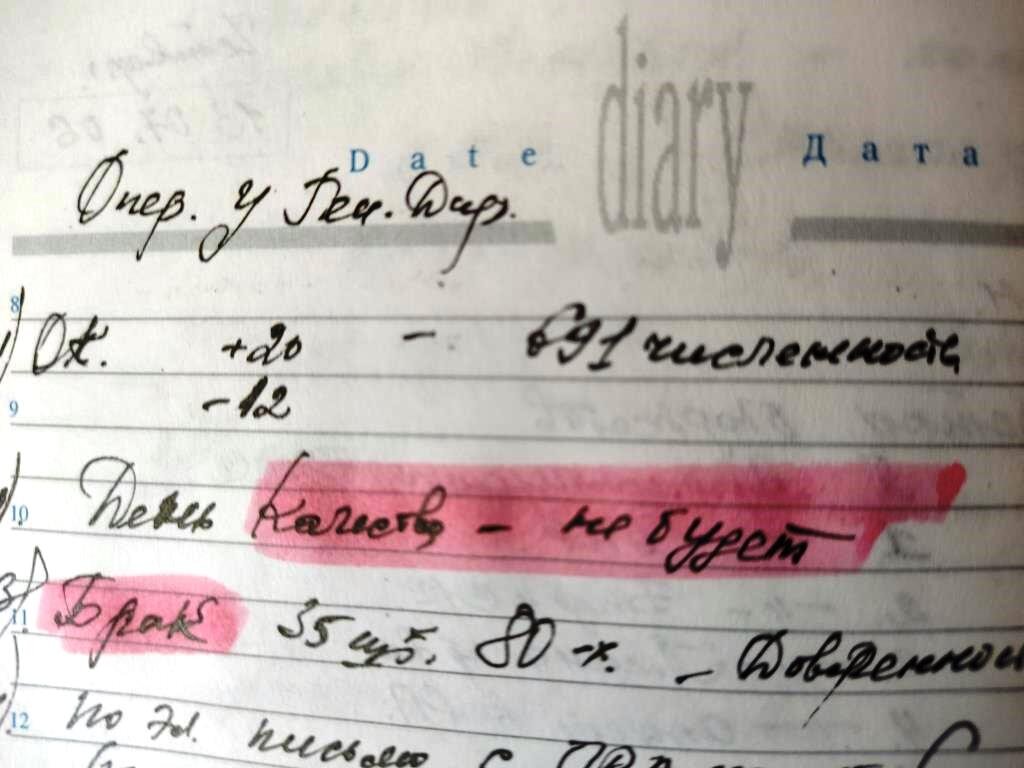 diary
Date Дата
Опер. у Ген. Дир.
8
ОК. +20 - 691 численность
9 -12
10 День Качества - не будет
3)
11 Брак 35 шт. 80 -х. - Доверенност
12 по эл. письмо с